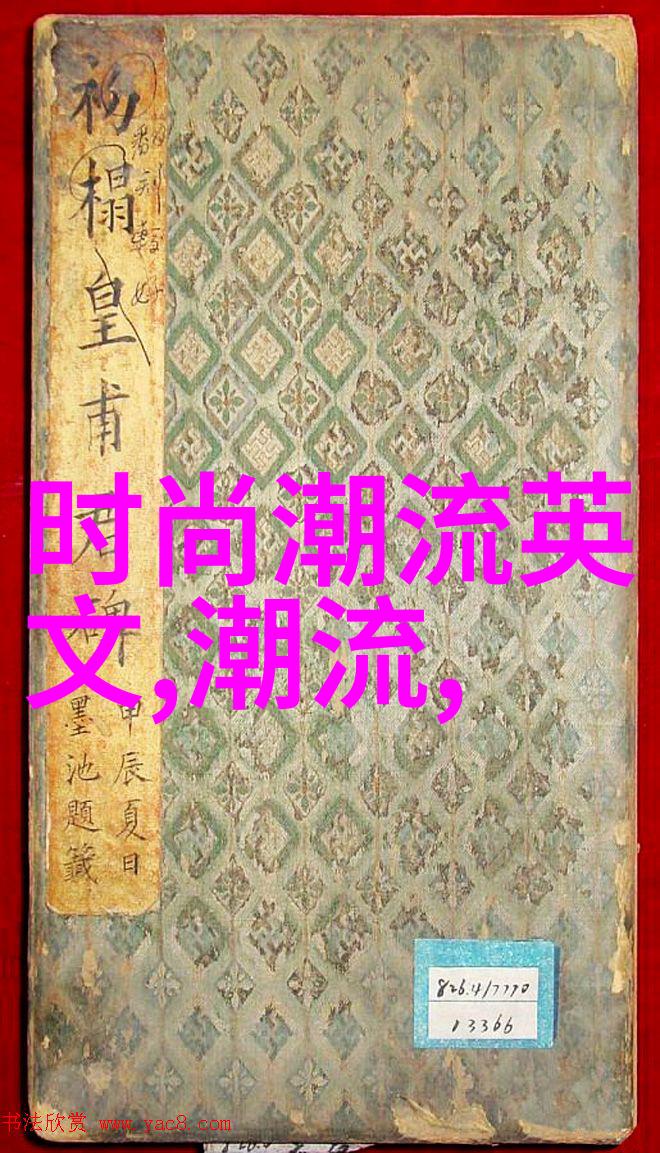 初榻皇甫君碑
甲辰夏日
墨池題籤
时尚潮流英
文,潮流,
826.4/7770
13366
书法欣赏 www.yac8.com